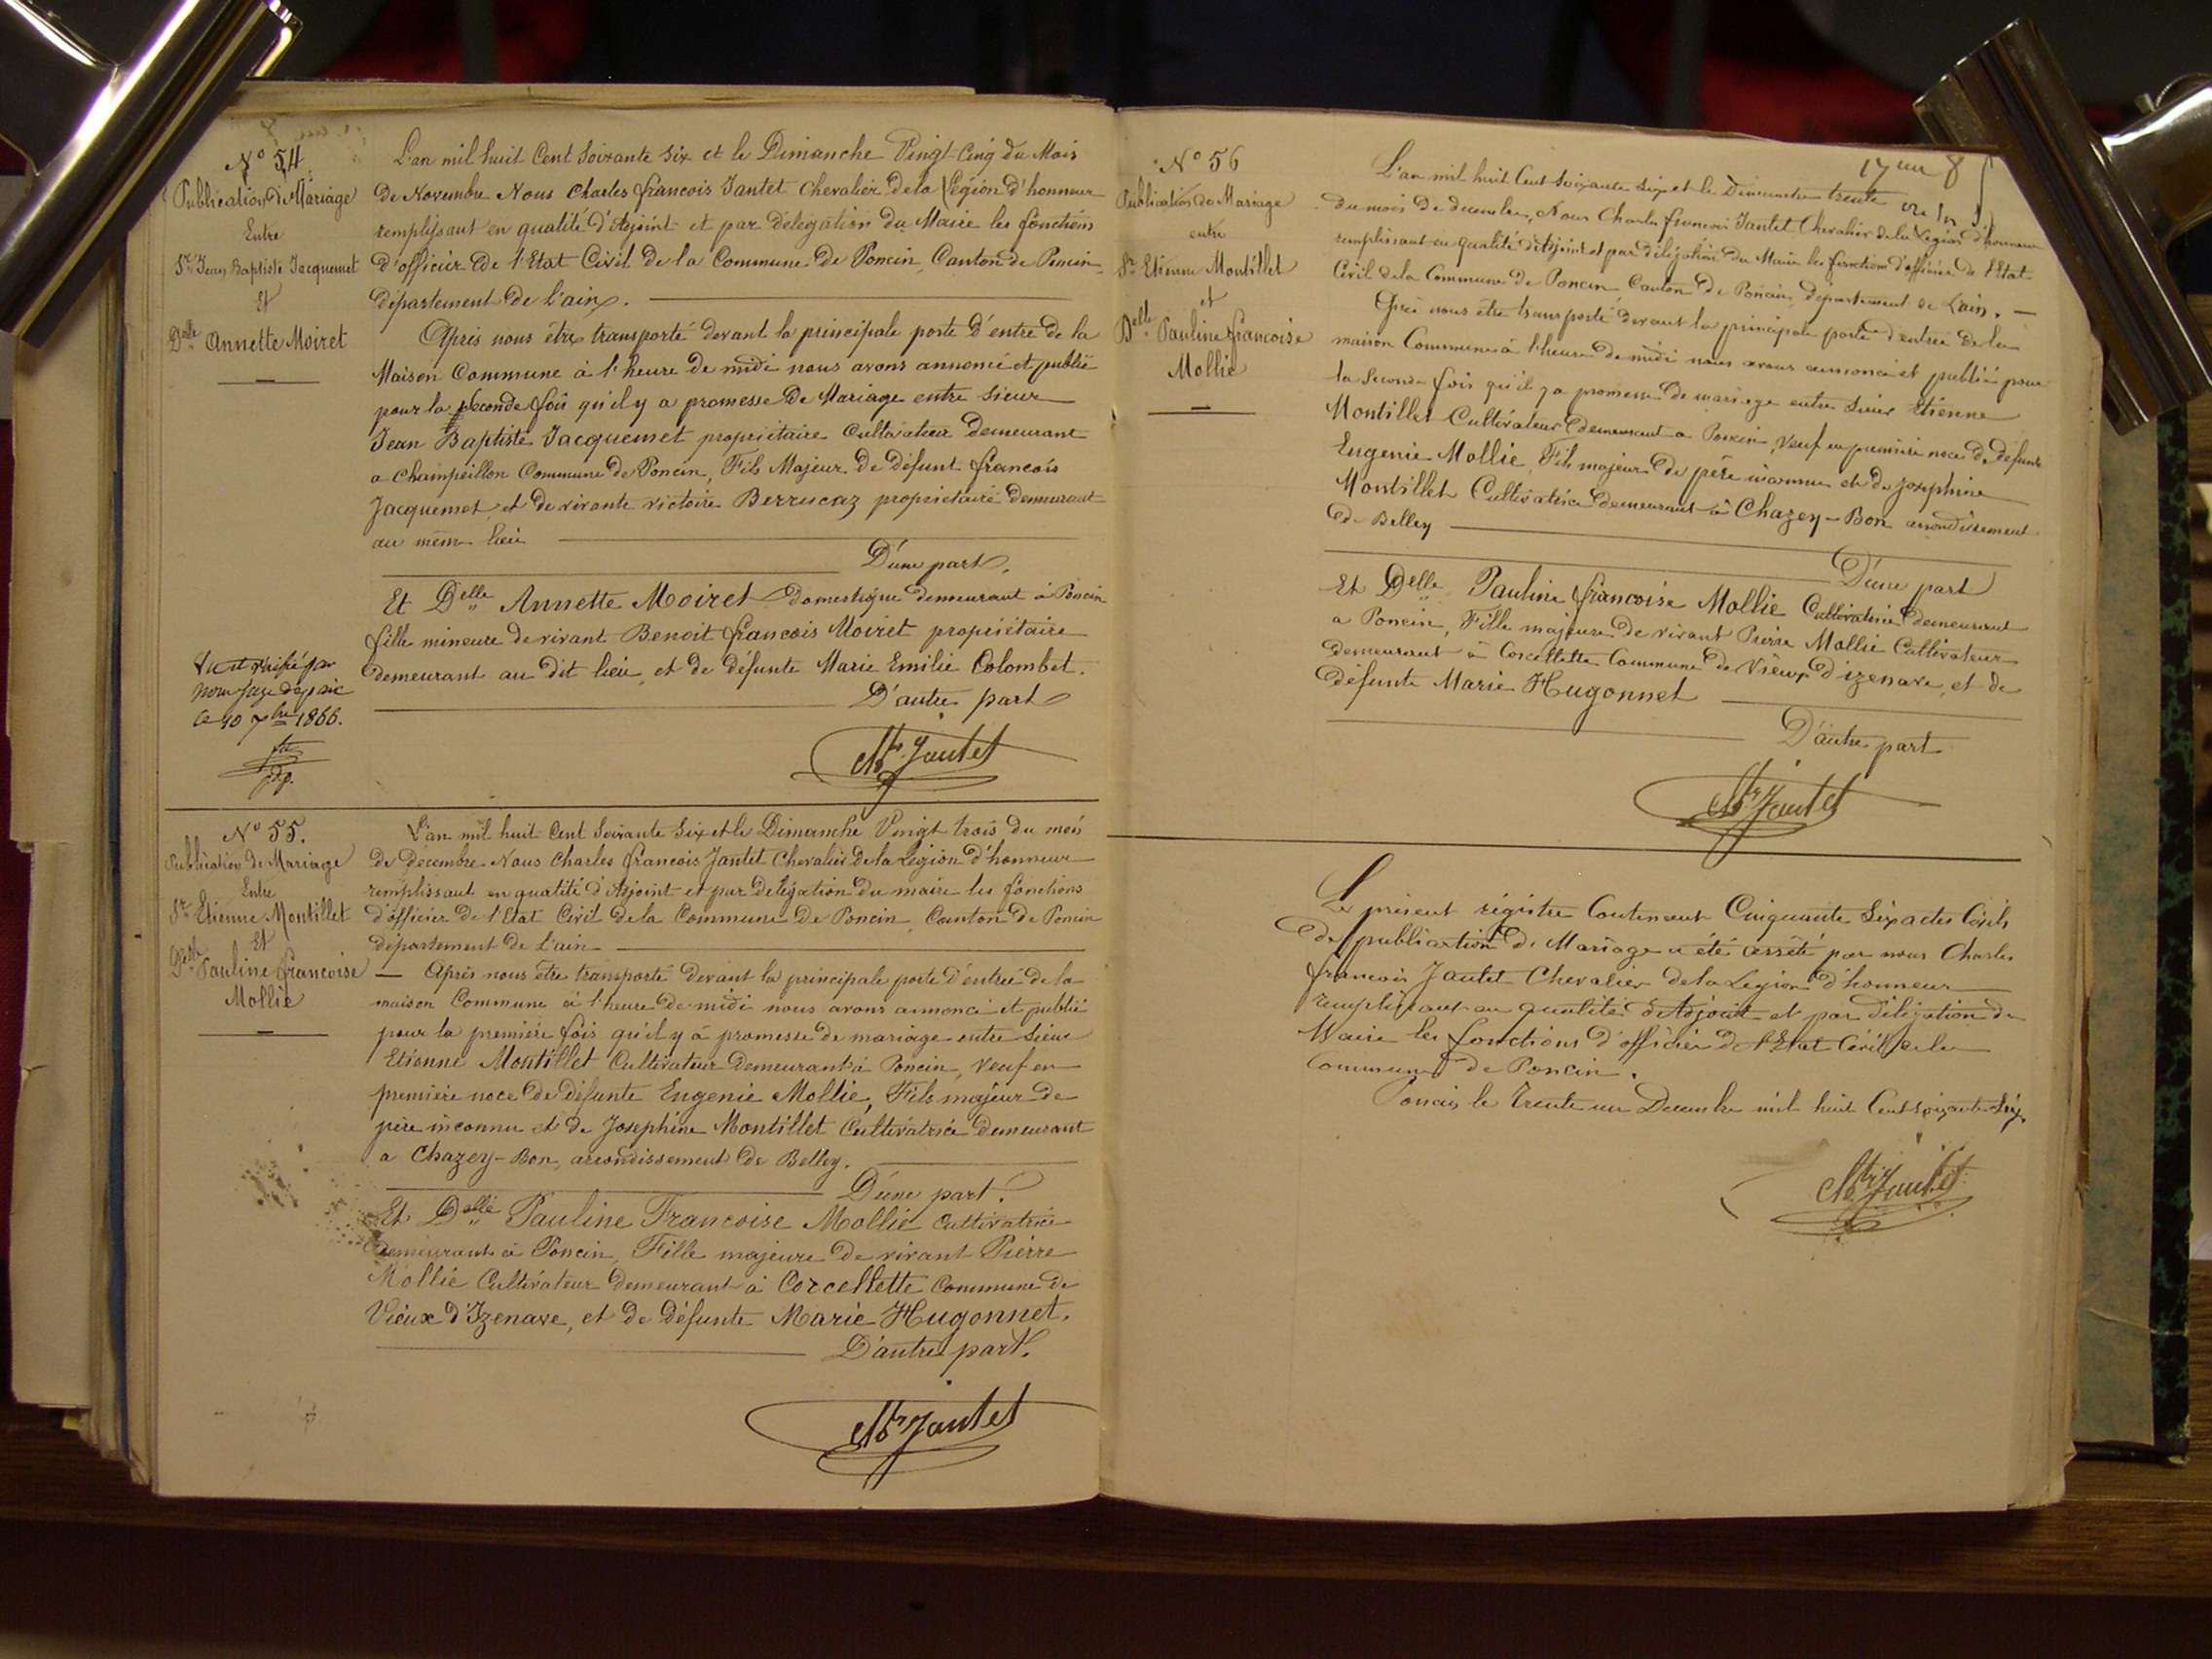 N° 54
Publication de Mariage
Entre
Sr Jean Baptiste Jacquemet
Et
Delle Annette Moiret
L'an mil huit Cent Soixante Six et le Dimanche Vingt Cinq du Mois
de Novembre Nous Charles francois Jantet Chevalier de la Légion d'honneur
remplissant en qualité d'Adjoint et par délégation du Maire les fonctions
d'officier de l'Etat Civil de la Commune de Poncin, Canton de Poncin
département de l'ain.
Après nous être transporté devant la principale porte d'entré de la
Maison Commune à l'heure de midi nous avons annoncé et publié
pour la Seconde fois qu'il y a promesse de Mariage entre Sieur
Jean Baptiste Jacquemet propriétaire Cultivateur demeurant
a Champeillon Commune de Poncin, Fils Majeur de défunt francois
Jacquemet et de vivante victoire Berrucaz propriétaire demeurant
au même lieu
D'une part.
Et Delle Annette Moiret domestique demeurant à Poncin
fille mineure de vivant Benoit francois Moiret propriétaire
demeurant au dit lieu, et de défunte Marie Emilie Colombet.
D'autre part
Vu et vérifié par
nous juge de paix
le 10 xbre 1866.
jdp.
Chr Jantet
N° 55.
Publication de Mariage
Entre
Sr Etienne Montillet
Et
Delle Pauline francoise
Mollie
L'an mil huit Cent Soixante Six et le Dimanche Vingt trois du mois
de Decembre Nous Charles francois Jantet Chevalier de la Légion d'honneur
remplissant en qualité d'Adjoint et par délégation du maire les fonctions
d'officier de l'Etat Civil de la Commune de Poncin, Canton de Poncin
département de L'ain
Après nous être transporté devant la principale porte d'entrée de la
maison Commune à l'heure de midi nous avons annoncé et publié
pour la première fois qu'il y à promesse de mariage entre Sieur
Etienne Montillet Cultivateur demeurant à Poncin, Veuf en
première noce de défunte Eugenie Mollie, Fils majeur de
père inconnu et de Josephine Montillet Cultivatrice demeurant
a Chazey-Bon, arrondissement de Belley.
D'une part.
Et Delle Pauline Francoise Mollie Cultivatrice
demeurant à Poncin, Fille majeure de vivant Pierre
Mollie Cultivateur demeurant à Corcellette Commune de
Vieux d'Izenave, et de défunte Marie Hugonnet.
D'autre part.
Chr Jantet
N° 56
Publication de Mariage
entre
Sr Etienne Montillet
et
Delle Pauline francoise
Mollie
L'an mil huit Cent Soixante Six et le Dimanche trente
du mois de decembre, Nous Charles francois Jantet Chevalier de la Légion d'honneur
remplissant en qualité d'Adjoint et par délégation du Maire les fonctions d'officier de l'Etat
Civil de la Commune de Poncin Canton de Poncin, département de L'ain.
Après nous être transporté devant la principale porte d'entrée de la
maison Commune à l'heure de midi nous avons annoncé et publié pour
la Seconde fois qu'il y a promesse de mariage entre Sieur Etienne
Montillet Cultivateur demeurant a Poncin, Veuf en première noce de défunte
Eugenie Mollie, Fils majeur de père inconnu et de Josephine
Montillet Cultivatrice demeurant à Chazey-Bon arrondissement
de Belley
D'une part
Et Delle Pauline francoise Mollie Cultivatrice demeurant
a Poncin, Fille majeure de vivant Pierre Mollie Cultivateur
demeurant à Corcellette Commune de Vieux d'izenave, et de
défunte Marie Hugonnet
D'autre part
Chr Jantet
Le présent régistre Contenant Cinquante Six actes Civils
de publication de Mariage a été arrêté par nous Charles
francois Jantet Chevalier de la Légion d'honneur
remplissant en qualité d'Adjoint et par délégation du
Maire les fonctions d'officier de l'Etat Civil de la
Commune de Poncin.
Poncin le trente un Decembre mil huit Cent soixante Six
Chr Jantet